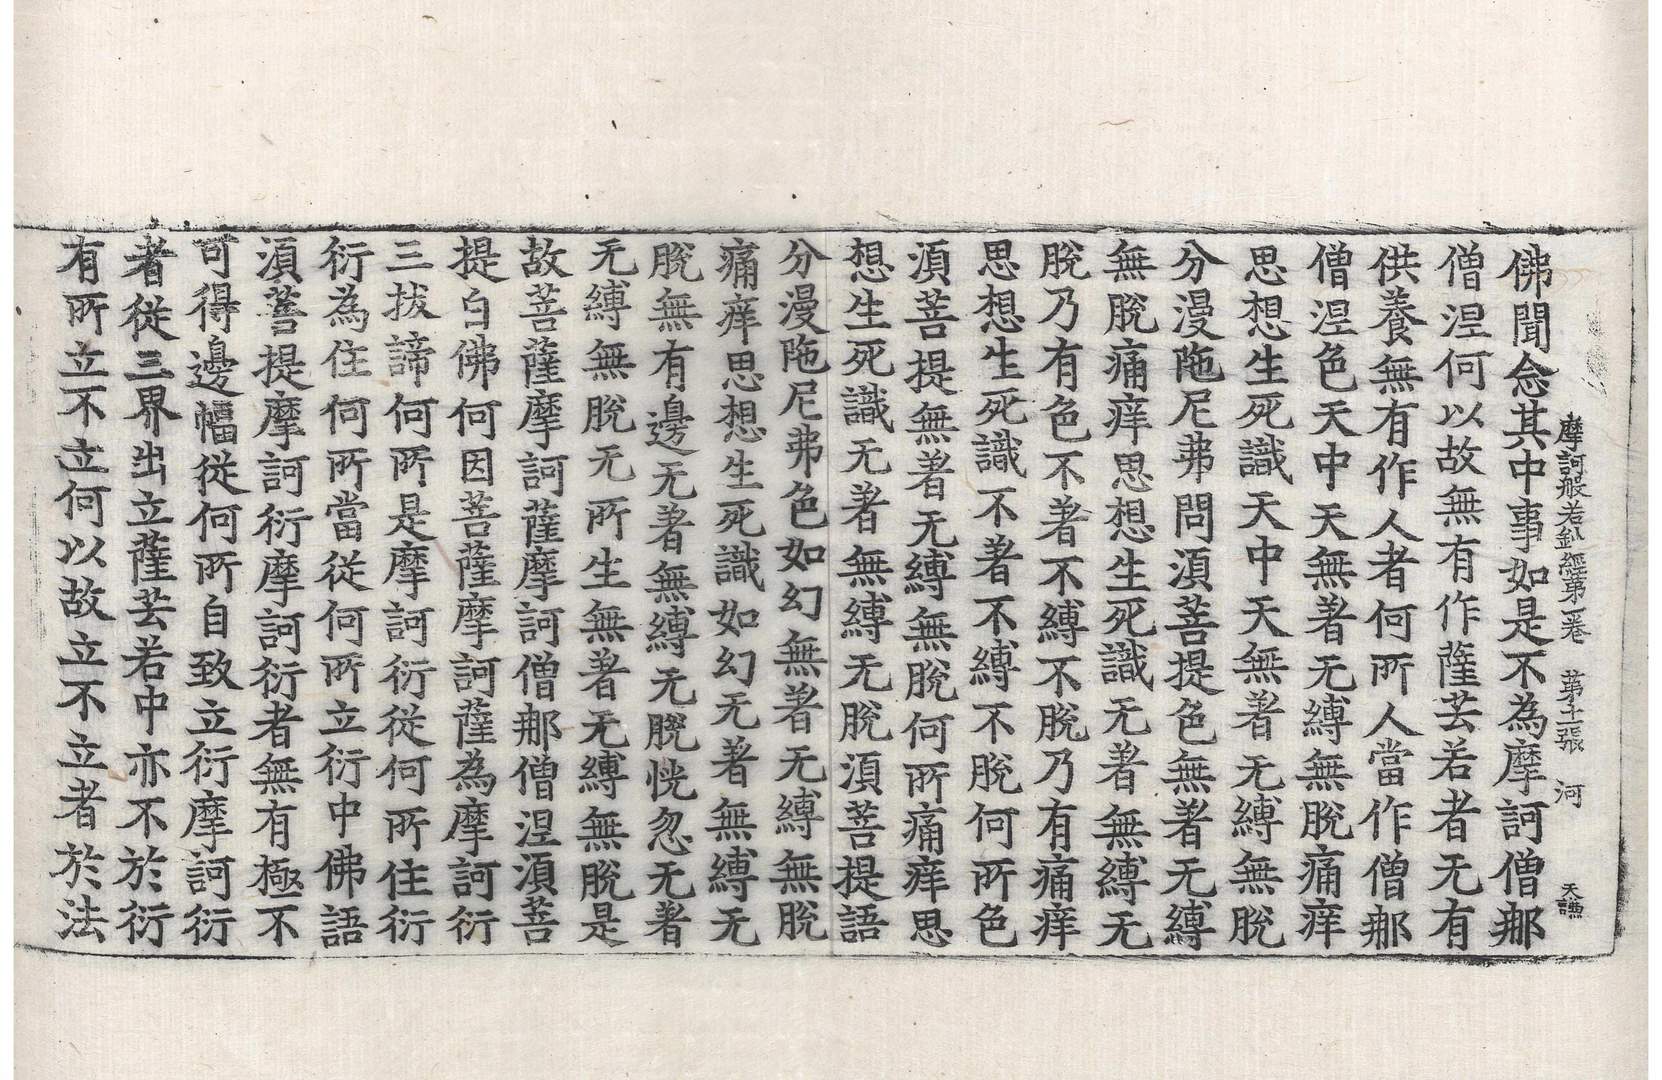 摩訶般若鈔經第一卷　第十一張　河　天謙
佛聞念其中事如是不為摩訶僧那
僧涅何以故無有作薩芸若者无有
供養無有作人者何所人當作僧那
僧涅色天中天無著无縛無脫痛痒
思想生死識天中天無著无縛無脫
分漫陁尼弗問湏菩提色無著无縛
無脫痛痒思想生死識无著無縛无
脫乃有色不著不縛不脫乃有痛痒
思想生死識不著不縛不脫何所色
湏菩提無著无縛無脫何所痛痒思
想生死識无著無縛无脫湏菩提語
分漫陁尼弗色如幻無著无縛無脫
痛痒思想生死識如幻无著無縛无
脫無有邊无著無縛无脫恍忽无著
无縛無脫无所生無著无縛無脫是
故菩薩摩訶薩摩訶僧那僧涅湏菩
提白佛何因菩薩摩訶薩為摩訶衍
三拔諦何所是摩訶衍從何所住衍
衍為住何所當從何所立衍中佛語
湏菩提摩訶衍摩訶衍者無有極不
可得邊幅從何所自致立衍摩訶衍
者從三界出立薩芸若中亦不於衍
有所立不立何以故立不立者於法